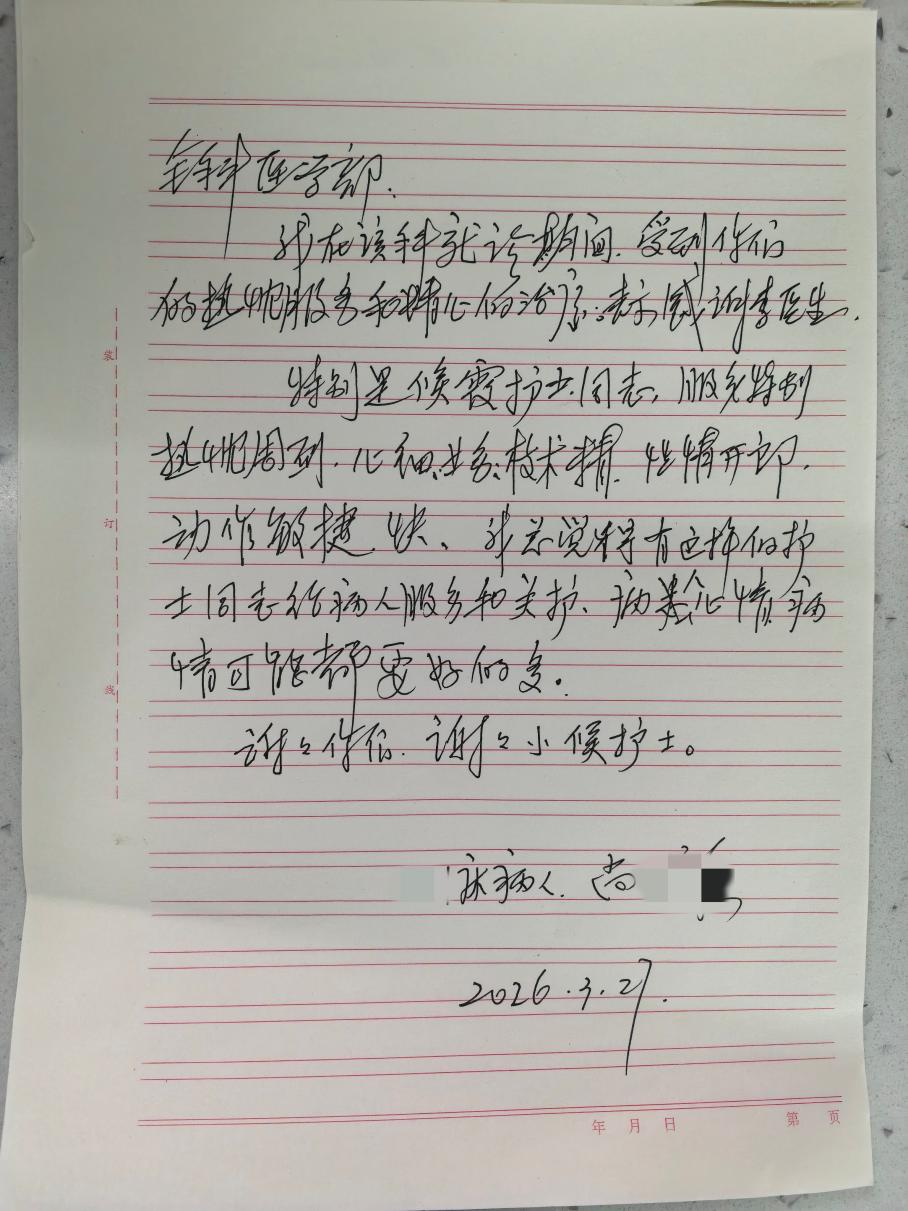 全科医学部.
我在该科就诊期间.受到你们
的热情服务和精心的治疗;表示感谢李医生.
特别是候霞护士同志,服务特别
热情周到.心细、业务技术精.性情开朗.
动作敏捷快、我总觉得有这样的护
士同志给病人服务和关护、病人心情、病
情可能都要好的多。
谢々你们.谢々小候护士。
床病人.尚
2026.3.27.
装
订
线
年 月 日
第 页